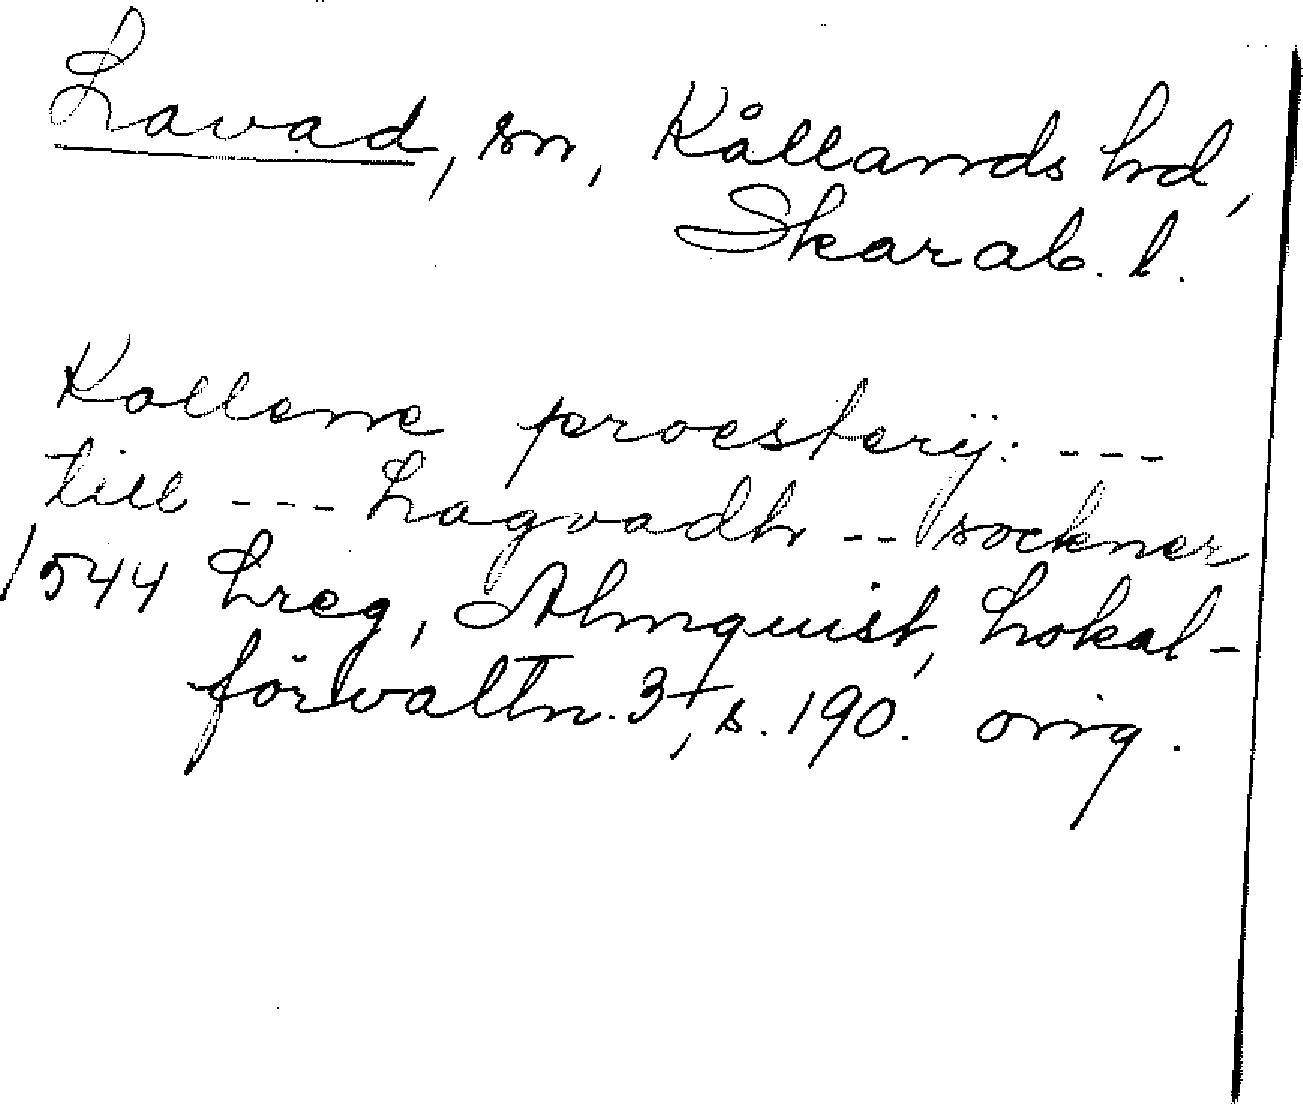 Lavad, sn, Kållands hd,
Skarab. l.
Kollene proesterij: ---
till --- Lagvadh -- sockner
1544 Lreg, Almquist, Lokal-
förvaltn. 3, s. 190. orig.